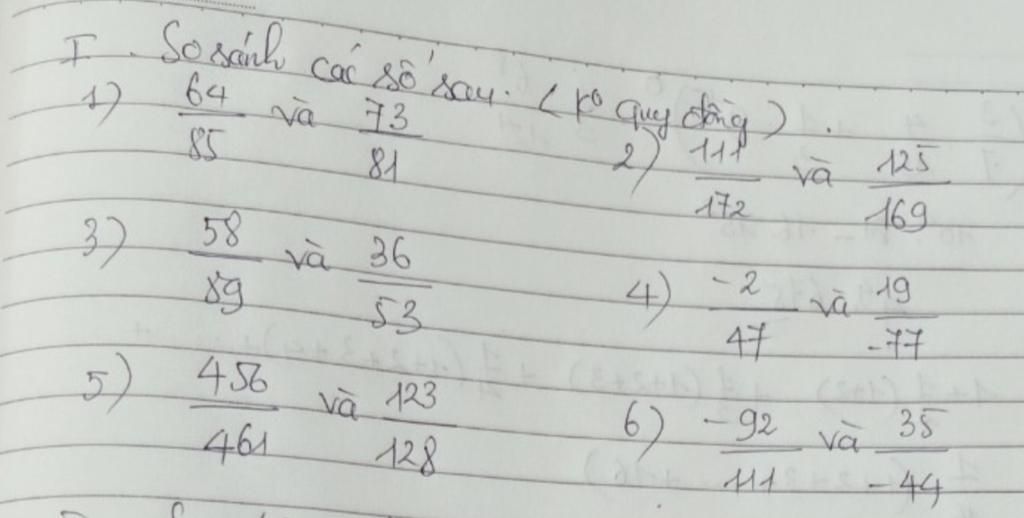 I. So sánh các số sau. (ko quy đồng).
1) 64/85 và 73/81
2) 111/172 và 125/169
3) 58/89 và 36/53
4) -2/47 và 19/-77
5) 456/461 và 123/128
6) -92/111 và 35/-44